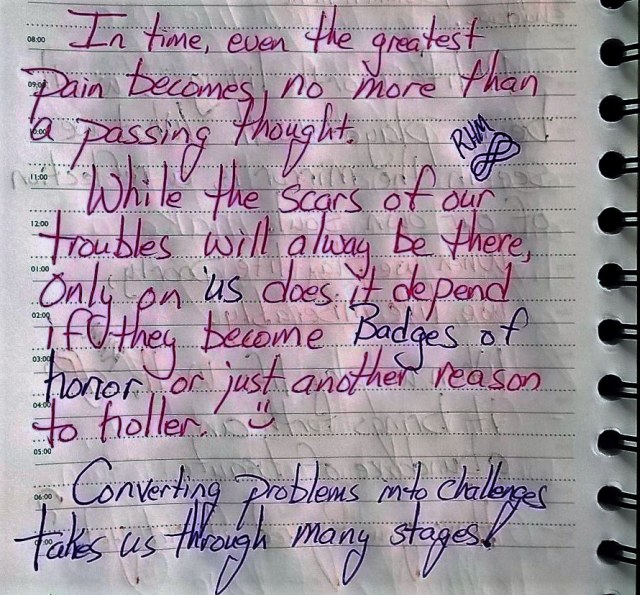 08:00 In time, even the greatest
09:00 pain becomes no more than
10:00 a passing thought.
RHM
11:00
While the scars of our
12:00
troubles will alway be there,
01:00
Only on us does it depend
02:00
if they become Badges of
03:00
honor or just another reason
04:00
to holler. :)
05:00
06:00 Converting problems into challenges
07:00 takes us through many stages!